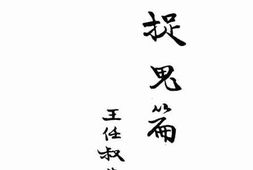 捉鬼篇
王任叔